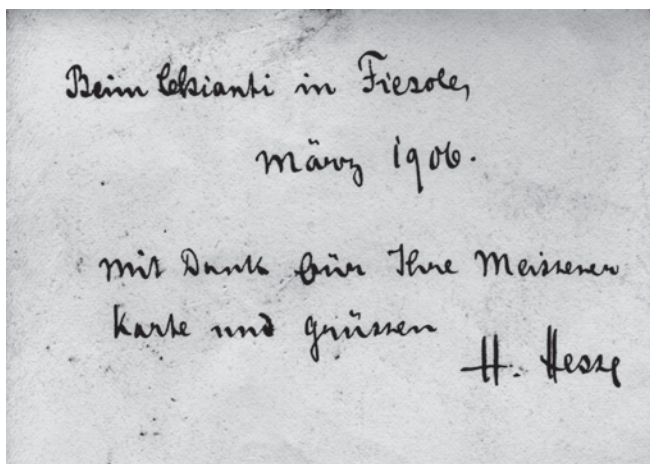 Beim Chianti in Fiesole,
März 1906.
Mit Dank für Ihre Meissener
Karte und Grüssen
H. Hesse